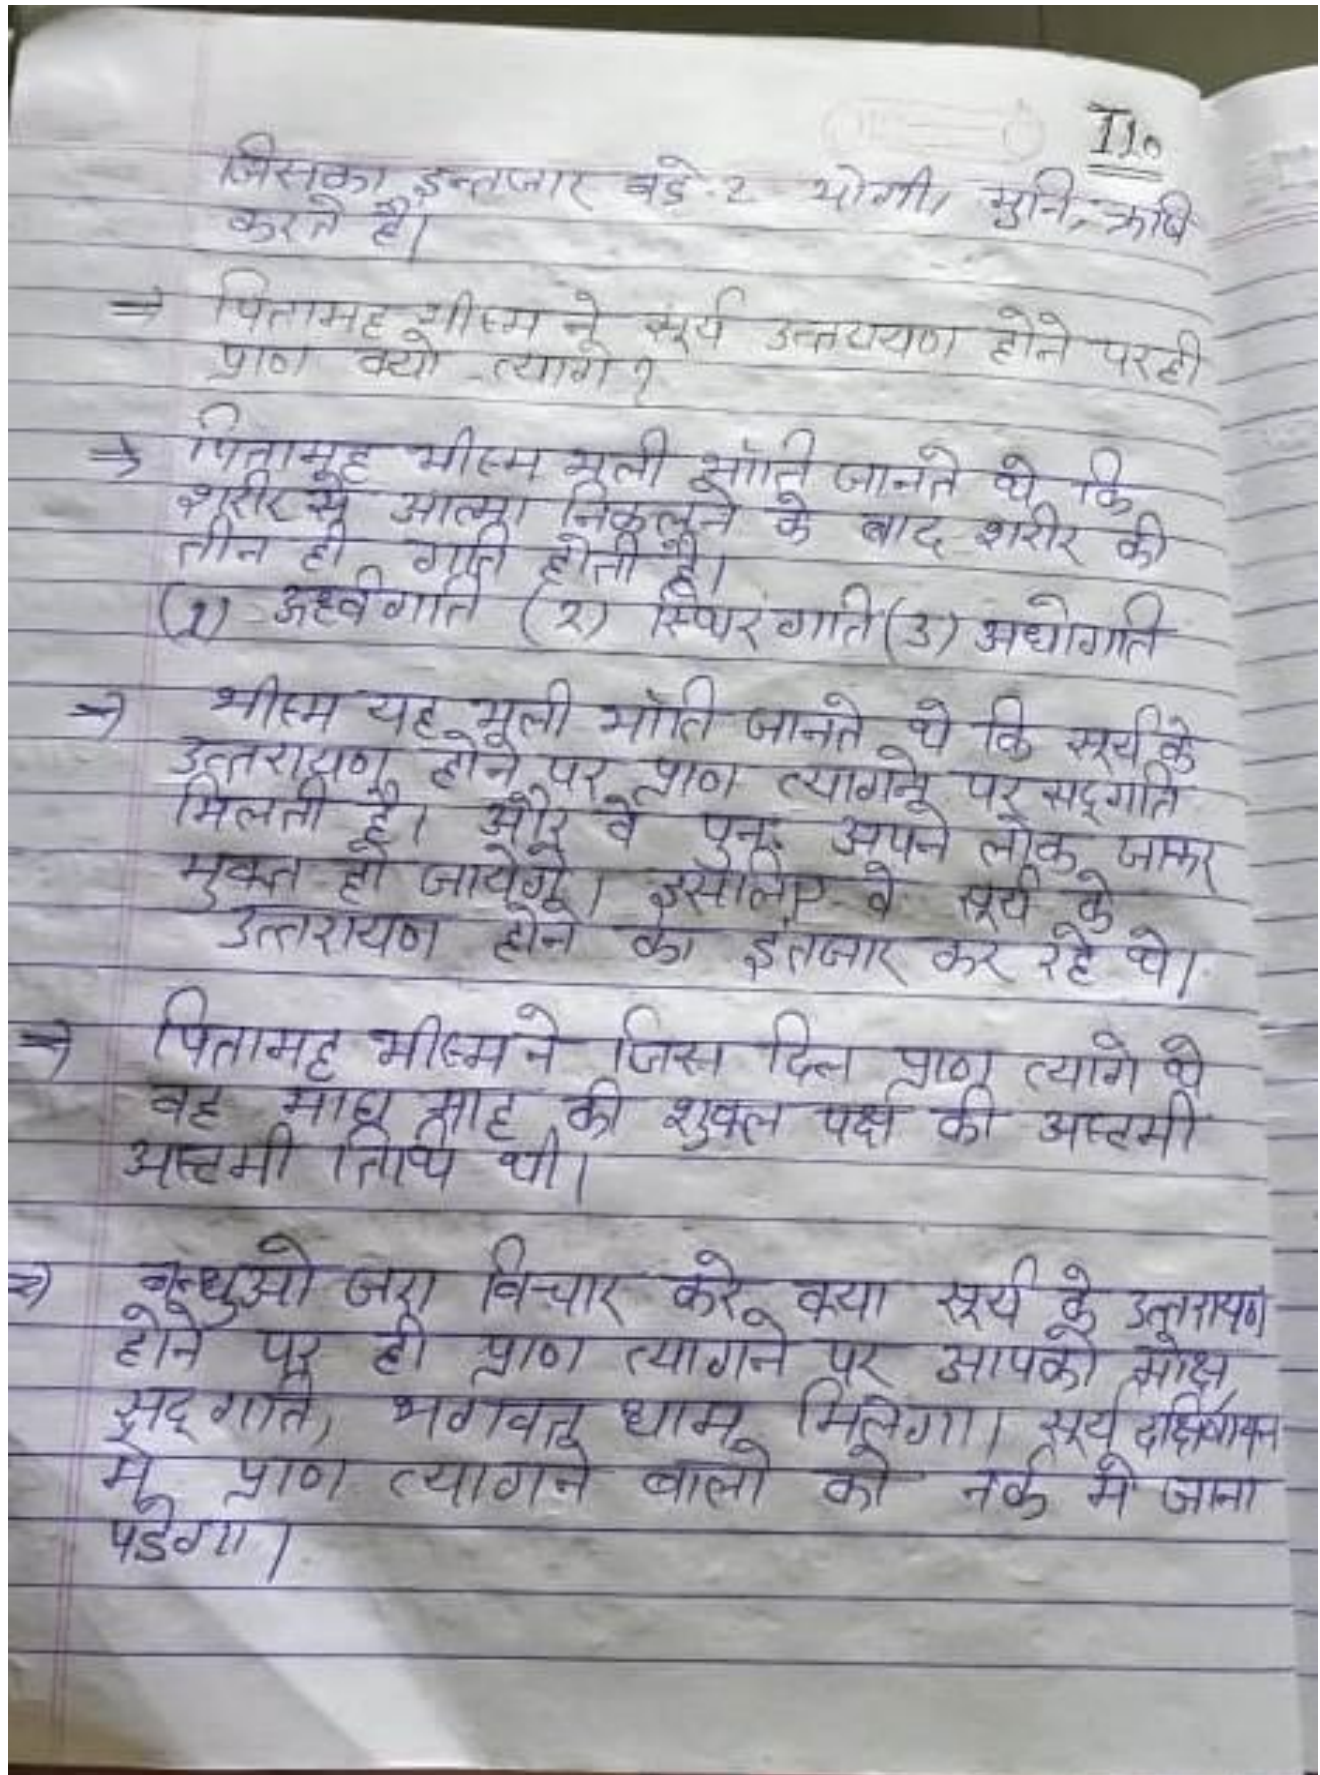 110
जिसका इन्तजार बडे-2 योगी, मुनि, ऋषि
करते है।
→ पितामह भीस्म ने सूर्य उत्तरायण होने पर ही
प्राण क्यो त्यागे?
→ पितामह भीस्म भली भाँति जानते थे कि
शरीर से आत्मा निकलने के बाद शरीर की
तीन ही गति होती है।
(1) उर्ध्वगति (2) स्थिर गति (3) अधोगति
→ भीस्म यह भली भाँति जानते थे कि सूर्य के
उत्तरायण होने पर प्राण त्यागने पर सद्गति
मिलती है। और वे पुनः अपने लोक जाकर
मुक्त हो जायेगे। इसलिए वे सूर्य के
उत्तरायण होने का इंतजार कर रहे थे।
→ पितामह भीस्म ने जिस दिन प्राण त्यागे थे
वह माघ माह की शुक्ल पक्ष की अष्टमी
अष्टमी तिथि थी।
→ बन्धुओ जरा विचार करे क्या सूर्य के उत्तरायण
होने पर ही प्राण त्यागने पर आपको मोक्ष
सद्गति, भगवत् धाम मिलेगा। सूर्य दक्षिणायन
मे प्राण त्यागने बालो को नर्क मे जाना
पडेगा।